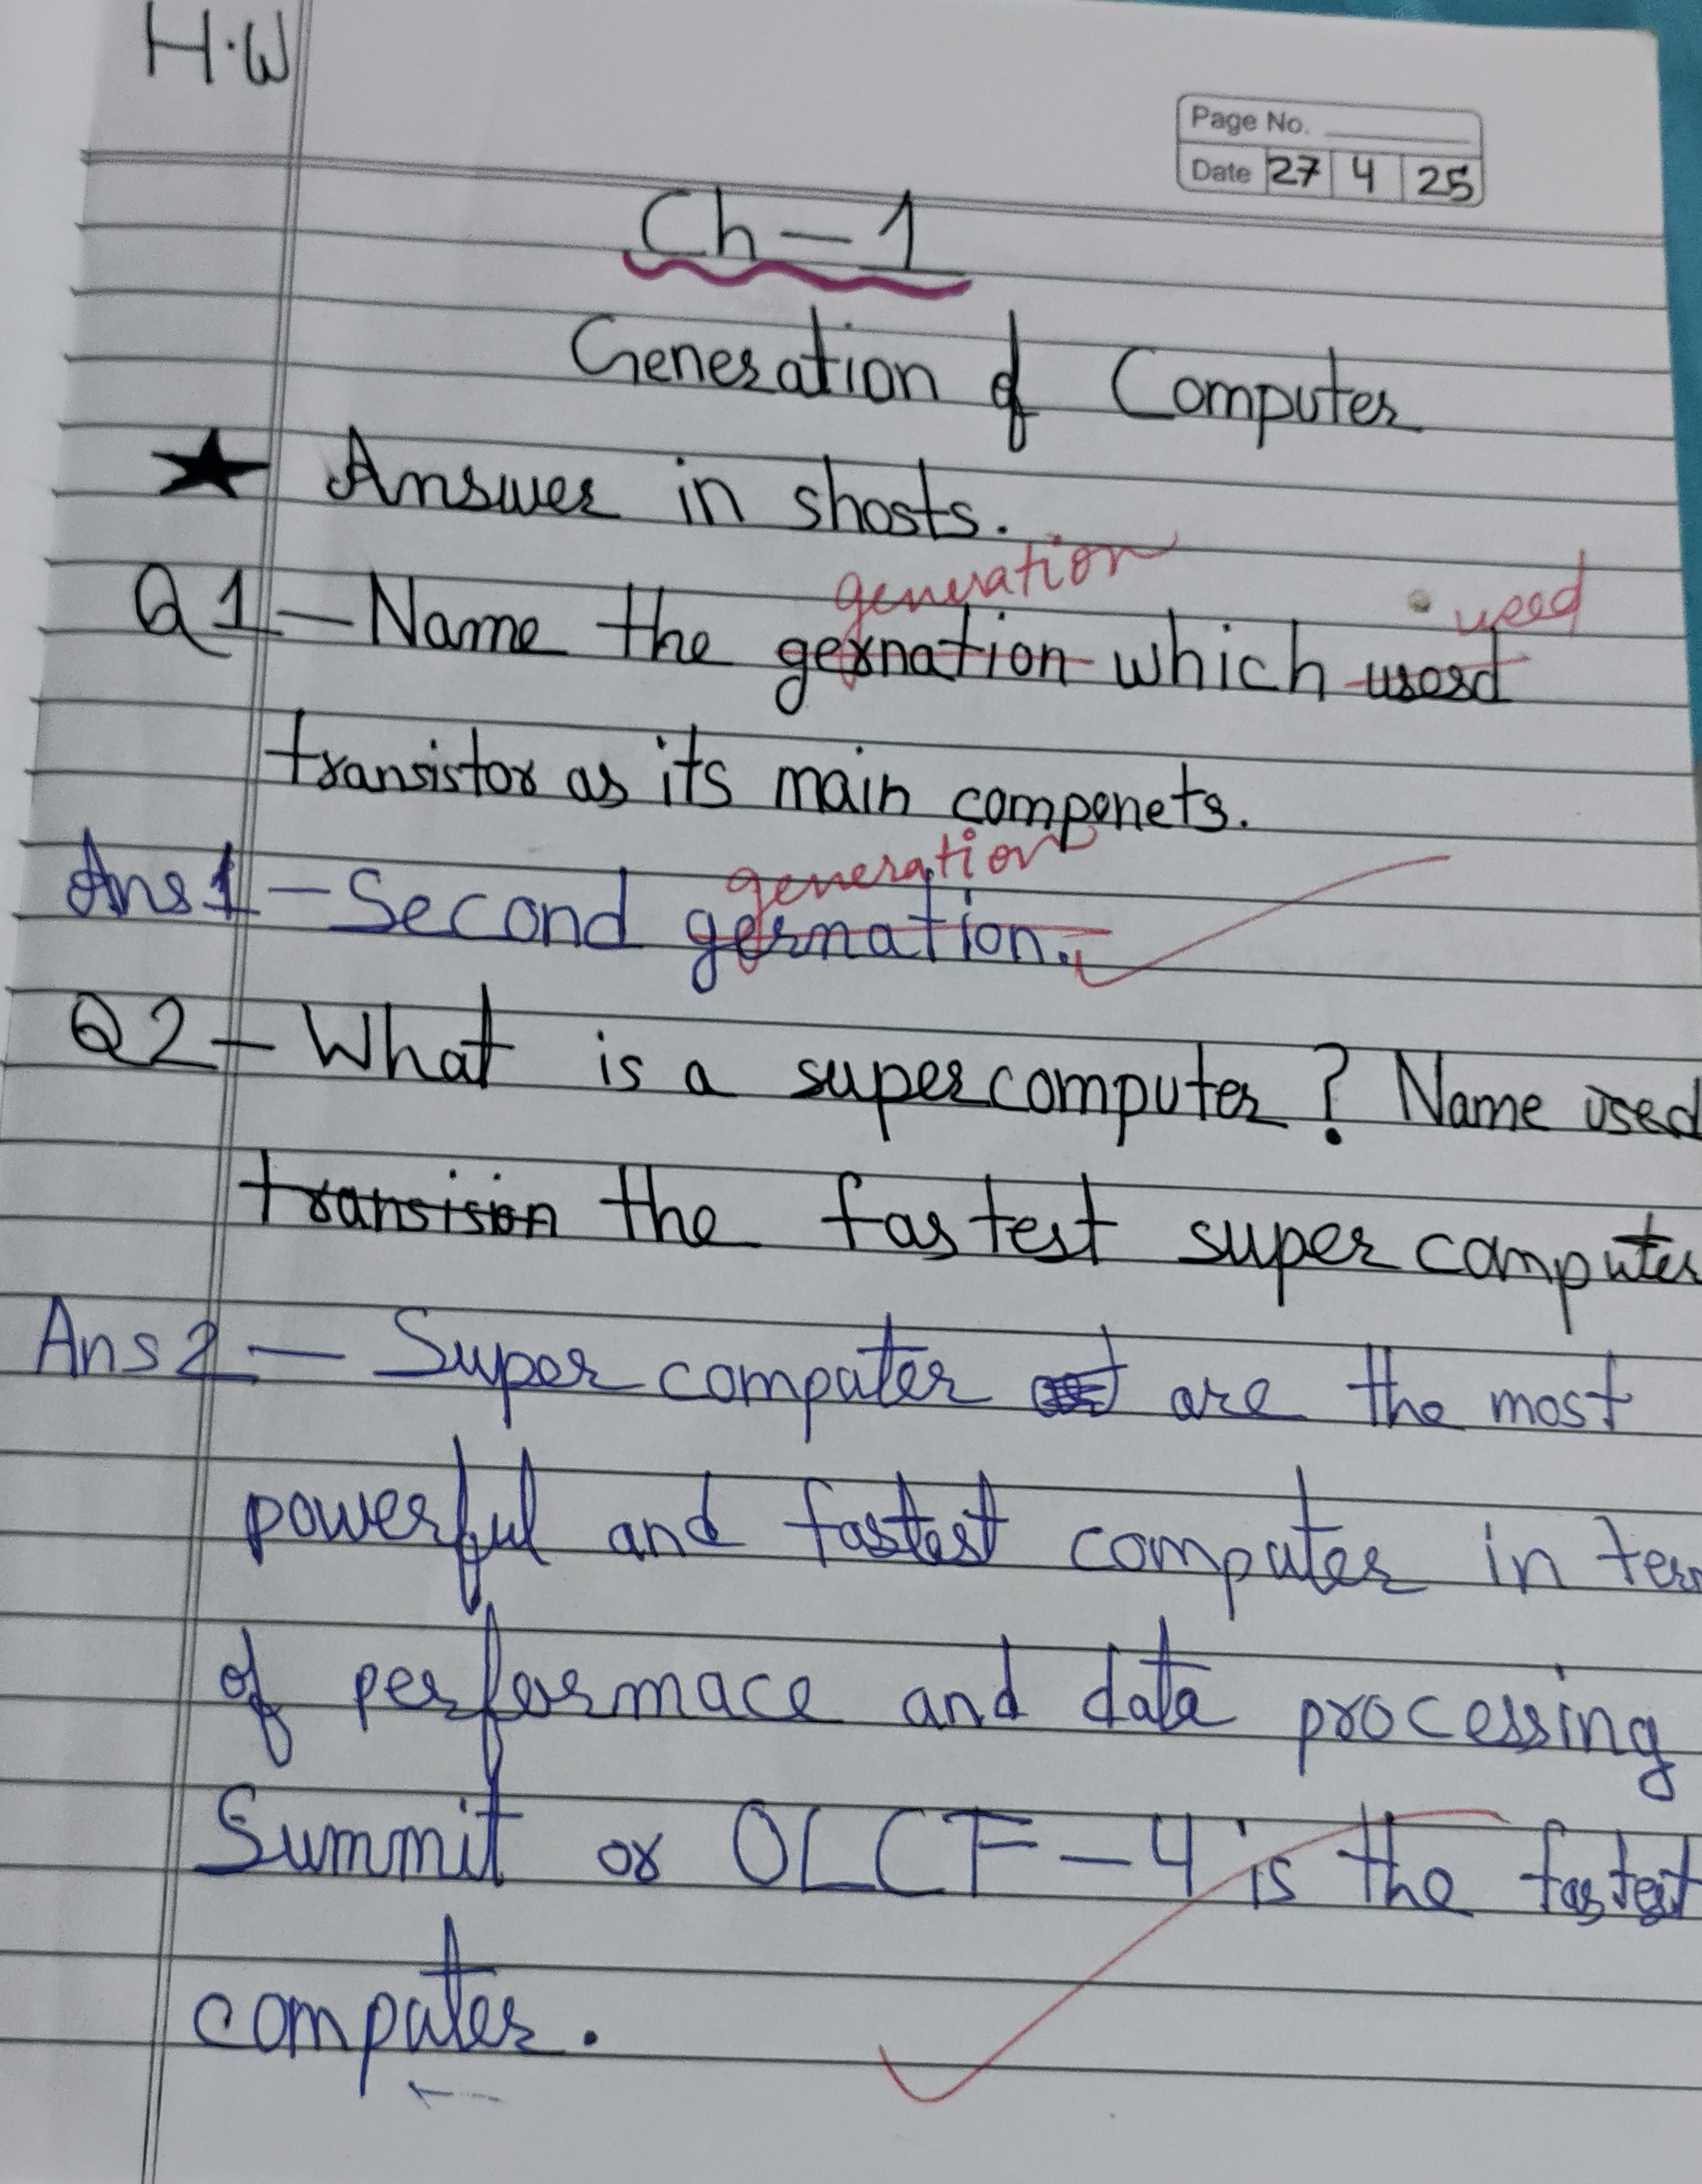 H.W
Page No.
Date 27 4 25
Ch-1
Generation of Computer
★ Answer in shosts.
generation used
Q1-Name the gernation which userd
transistor as its main componets.
generation
Ans1-Second gernation.
Q2-What is a supercomputer? Name used
transision the fastest supercomputer
Ans2-Supercomputer are the most
powerful and fastest computer in
of performace and data processing
Summit or OLCF-4 is the fastest
computer.